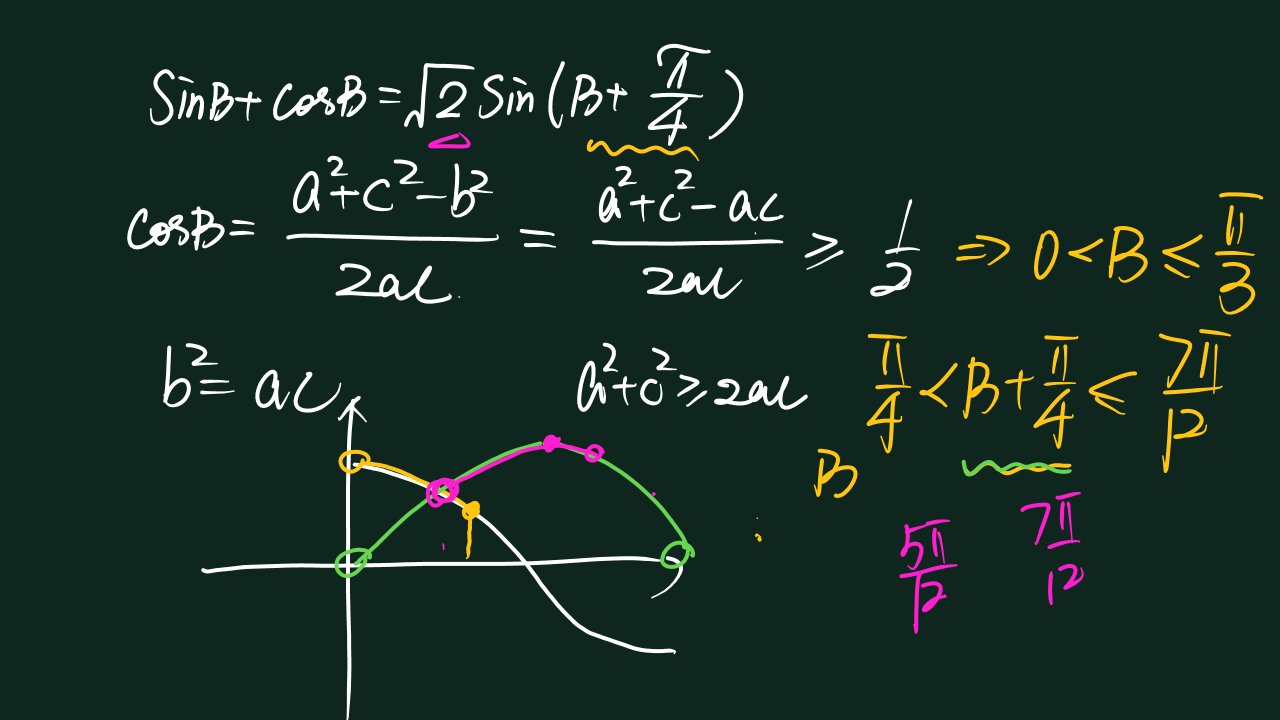 SinB + cosB = √2 Sin(B + π/4)
cosB = (a²+c²-b²)/(2ac) = (a²+c²-ac)/(2ac) ≥ 1/2 ⇒ 0 < B ≤ π/3
b² = ac
a²+c² ≥ 2ac
π/4 < B + π/4 ≤ 7π/12
B
5π/12
7π/12